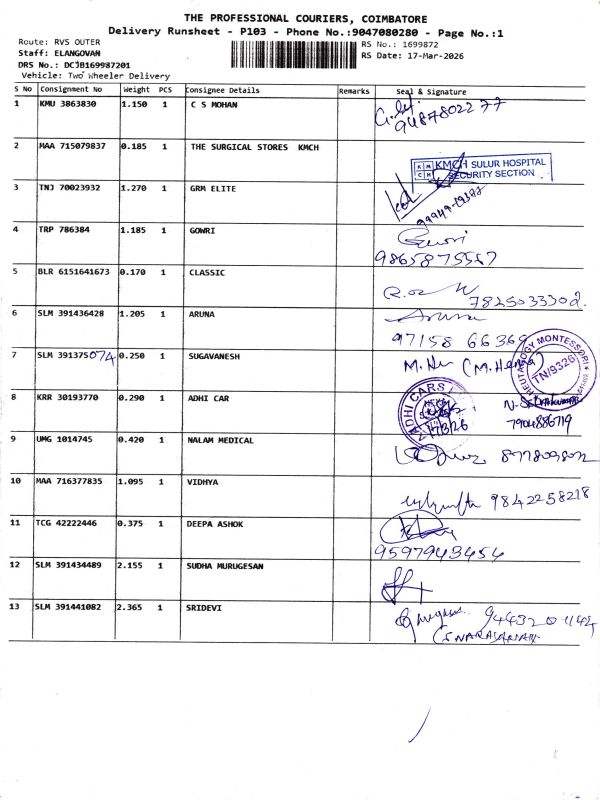 THE PROFESSIONAL COURIERS, COIMBATORE
Delivery Runsheet - P103 - Phone No.:9047080280 - Page No.:1
Route: RVS OUTER
RS No.: 1699872
Staff: ELANGOVAN
RS Date: 17-Mar-2026
DRS No.: DCJB169987201
Vehicle: Two Wheeler Delivery
S No Consignment No Weight PCS Consignee Details Remarks Seal & Signature
1 KMU 3863830 1.150 1 C S MOHAN
9487802277
2 MAA 715079837 0.185 1 THE SURGICAL STORES KMCH
KMCH SULUR HOSPITAL
SECURITY SECTION
3 TNJ 70023932 1.270 1 GRM ELITE
4 TRP 786384 1.185 1 GOWRI
Gowri
9865875557
5 BLR 6151641673 0.170 1 CLASSIC
7825033302
6 SLM 391436428 1.205 1 ARUNA
Aruna
97158 66369
7 SLM 391375074 0.250 1 SUGAVANESH
HEUTAGOGY MONTESSORI
TN/9326
8 KRR 30193770 0.290 1 ADHI CAR
ADHI CARS
17/3/26
7904886719
9 UMG 1014745 0.420 1 NALAM MEDICAL
10 MAA 716377835 1.095 1 VIDHYA
9842258218
11 TCG 42222446 0.375 1 DEEPA ASHOK
9597943454
12 SLM 391434489 2.155 1 SUDHA MURUGESAN
13 SLM 391441082 2.365 1 SRIDEVI